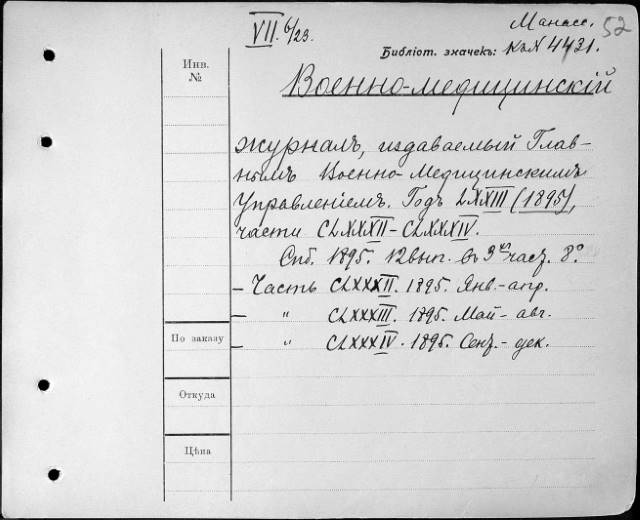 VII. 6/23.
Манасс. 52
Библіот. значекъ: К.N 4431.
Инв.
№
Военно-медицинскій
журналъ, издаваемый Глав-
нымъ Военно-Медицинскимъ
Управленіемъ. Годъ LXXIII (1895),
части CLXXXII-CLXXXIV.
Спб. 1895. 12 вып. въ 3хъ част. 8º
- Часть CLXXXII. 1895. Янв.-апр.
- „ CLXXXIII. 1895. Май-авг.
По заказу
- „ CLXXXIV. 1895. Сент.-дек.
Откуда
Цѣна